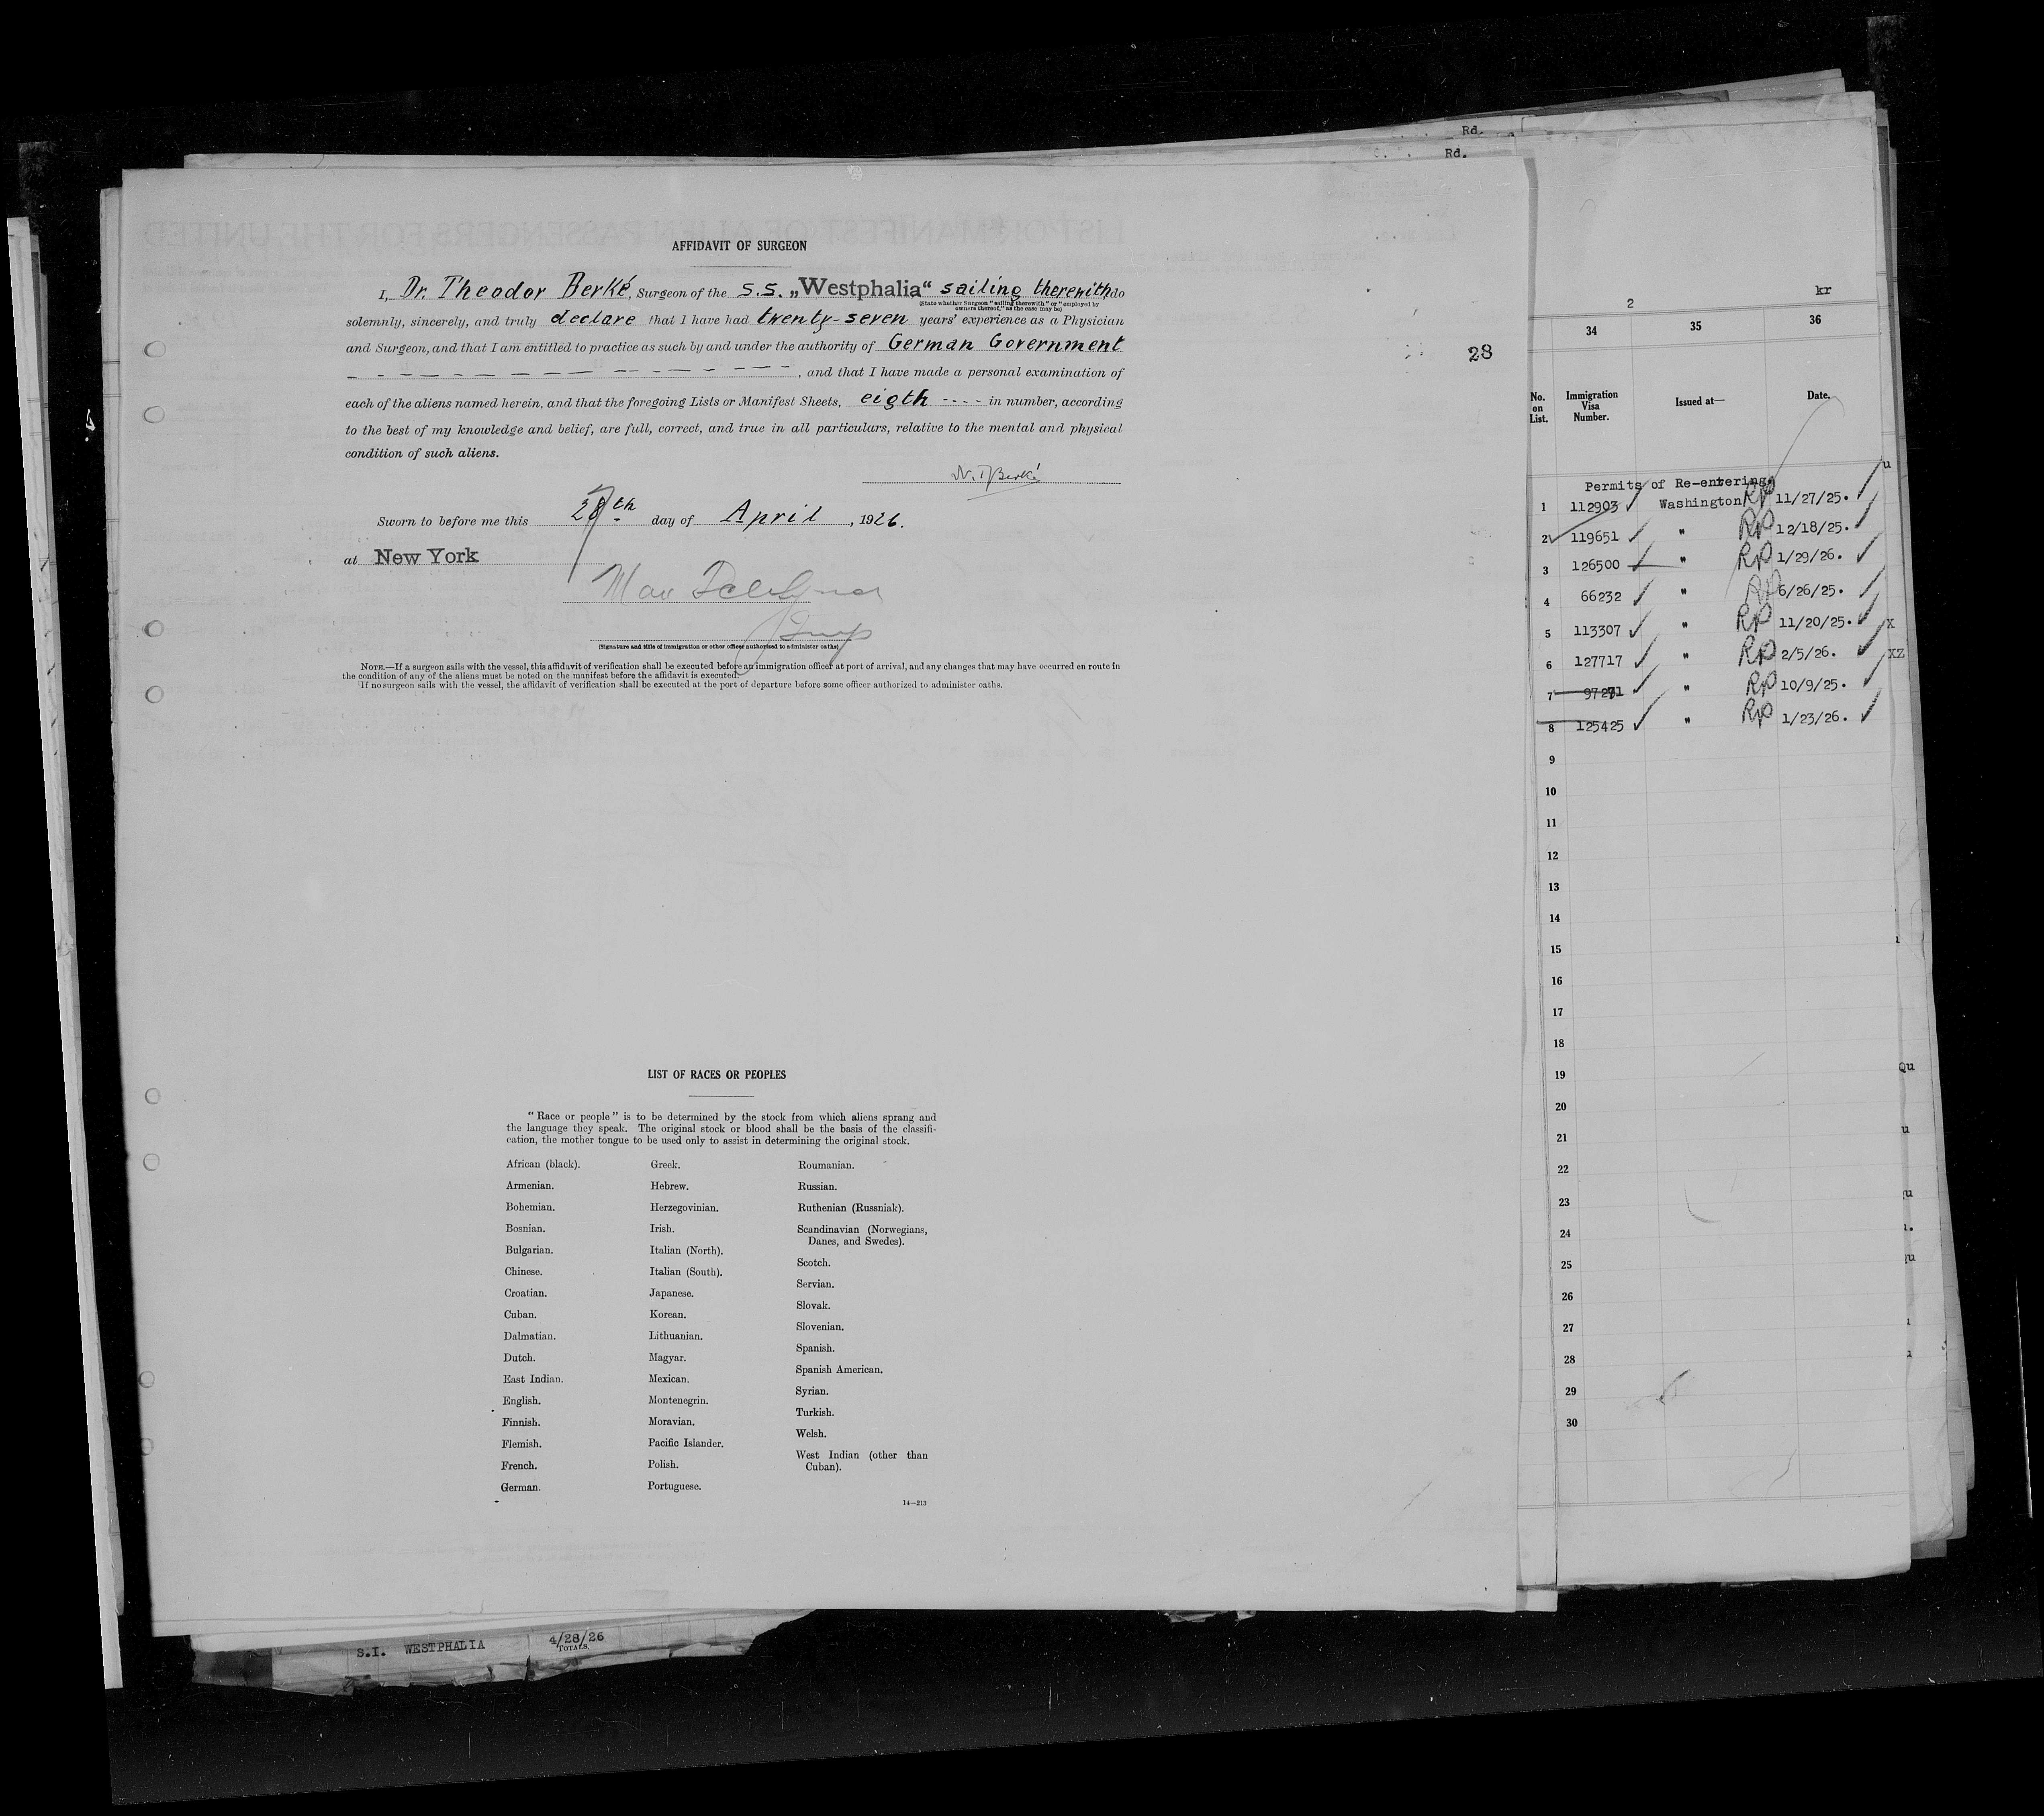 Rd.
Rd.
AFFIDAVIT OF SURGEON
I, Dr. Theodor Berké, Surgeon of the S.S. „Westphalia“ sailing therewith, do
(State whether Surgeon "sailing therewith" or "employed by
owners thereof," as the case may be)
solemnly, sincerely, and truly declare that I have had twenty-seven years' experience as a Physician
and Surgeon, and that I am entitled to practice as such by and under the authority of German Government
, and that I have made a personal examination of
each of the aliens named herein, and that the foregoing Lists or Manifest Sheets, eigth ---- in number, according
to the best of my knowledge and belief, are full, correct, and true in all particulars, relative to the mental and physical
condition of such aliens.
Sworn to before me this 28th day of April, 1926.
at New York
(Signature and title of immigration or other officer authorized to administer oaths)
NOTE.—If a surgeon sails with the vessel, this affidavit of verification shall be executed before an immigration officer at port of arrival, and any changes that may have occurred en route in
the condition of any of the aliens must be noted on the manifest before the affidavit is executed.
If no surgeon sails with the vessel, the affidavit of verification shall be executed at the port of departure before some officer authorized to administer oaths.
28
LIST OF RACES OR PEOPLES
"Race or people" is to be determined by the stock from which aliens sprang and
the language they speak. The original stock or blood shall be the basis of the classifi-
cation, the mother tongue to be used only to assist in determining the original stock.
African (black).
Armenian.
Bohemian.
Bosnian.
Bulgarian.
Chinese.
Croatian.
Cuban.
Dalmatian.
Dutch.
East Indian.
English.
Finnish.
Flemish.
French.
German.
Greek.
Hebrew.
Herzegovinian.
Irish.
Italian (North).
Italian (South).
Japanese.
Korean.
Lithuanian.
Magyar.
Mexican.
Montenegrin.
Moravian.
Pacific Islander.
Polish.
Portuguese.
Roumanian.
Russian.
Ruthenian (Russniak).
Scandinavian (Norwegians,
Danes, and Swedes).
Scotch.
Servian.
Slovak.
Slovenian.
Spanish.
Spanish American.
Syrian.
Turkish.
Welsh.
West Indian (other than
Cuban).
14—213
S.I. WESTPHALIA 4/28/26
TOTALS.
kr
2
34 35 36
No.
on
List.
Immigration
Visa
Number.
Issued at—
Date.
Permits of Re-entering
1 112903 Washington RP 11/27/25.
2 119651 " RP 12/18/25.
3 126500 " RP 1/29/26.
4 66232 " RP 6/26/25.
5 113307 " RP 11/20/25.
6 127717 " RP 2/5/26.
7 97271 " RP 10/9/25.
8 125425 " RP 1/23/26.
9
10
11
12
13
14
15
16
17
18
19
20
21
22
23
24
25
26
27
28
29
30
u
X
XZ
Qu
u